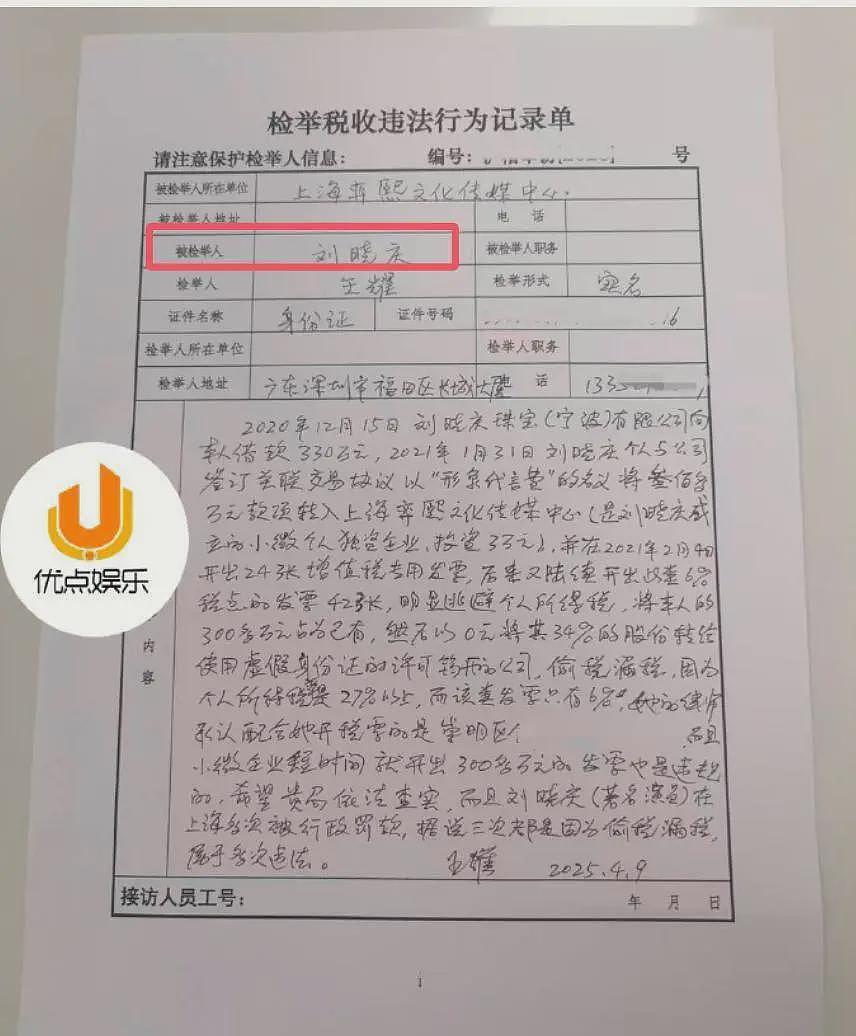 检举税收违法行为记录单
请注意保护检举人信息: 编号: 号
被检举人所在单位 上海弈熙文化传媒中心.
被检举人地址 电 话
被检举人 刘晓庆 被检举人职务
检举人 王耀 检举形式 实名
证件名称 身份证 证件号码 16
检举人所在单位 检举人职务
检举人地址 广东深圳市福田区长城大厦 话 133
2020年12月15日 刘晓庆珠宝(宁波)有限公司向
本人借款330万元, 2021年1月31日刘晓庆个人与公司
签订关联交易协议以“形象代言费”的名义将叁佰多
万元款项转入上海弈熙文化传媒中心(是刘晓庆成
立的小微个人独资企业, 投资3万元), 并在2021年2月4日
开出24张增值税专用发票, 后来又陆续开出6%
税点的发票42张, 明显逃避个人所得税, 将本人的
300多万元占为己有, 然后以0元将其34%的股份转给
使用虚假身份证的许可筠开的公司, 偷税漏税, 因为
个人所得税是27%以上, 而该类发票只有6%, 她的律师
承认配合她开税票的是崇明区个 而且
小微企业短时间就开出300多万元的发票也是违规
的, 希望贵局依法查实, 而且刘晓庆(著名演员)在
上海多次被行政罚款, 据说三次都是因为偷税漏税,
属于多次违法。 王耀 2025.4.9
内
容
接访人员工号: 年 月 日
1
优点娱乐